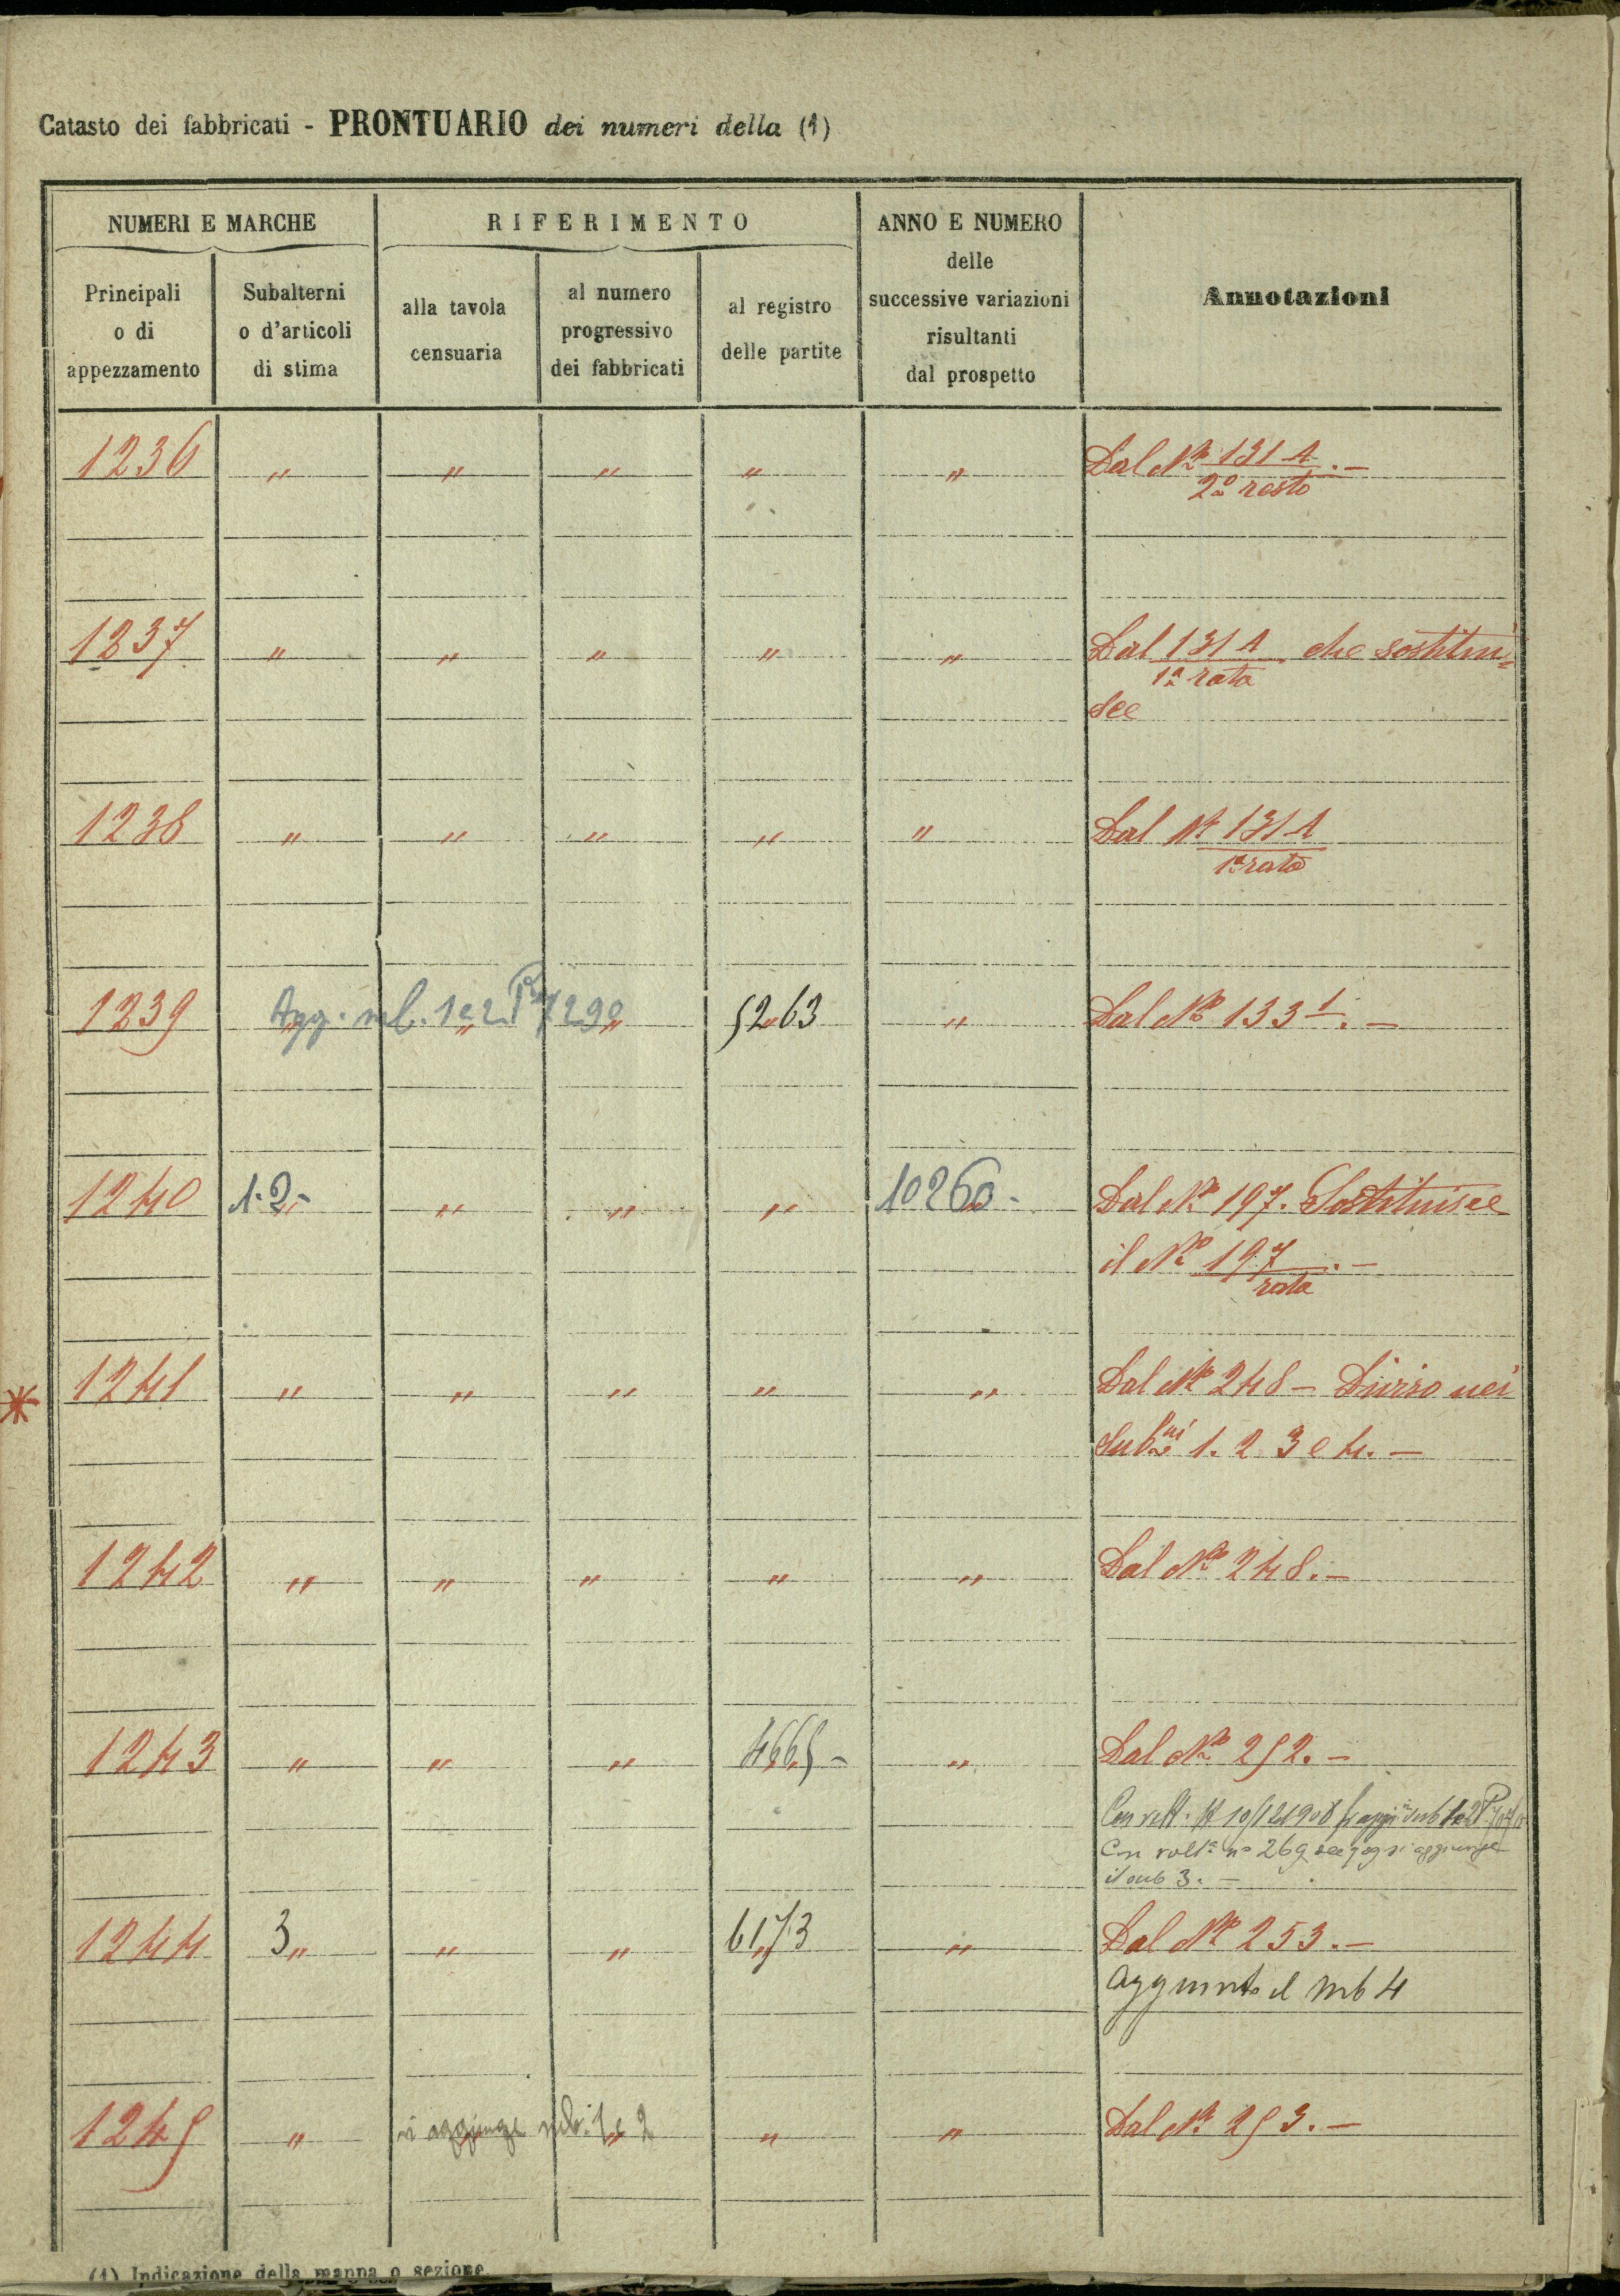 Catasto dei fabbricati - PRONTUARIO dei numeri della (1)
NUMERI E MARCHE
RIFERIMENTO
ANNO E NUMERO
delle
successive variazioni
risultanti
dal prospetto
Annotazioni
Principali
o di
appezzamento
Subalterni
o d'articoli
di stima
alla tavola
censuaria
al numero
progressivo
dei fabbricati
al registro
delle partite
1236 " " " " " Dal No 131 A . -
2o resto
1237 " " " " " Dal 131 A che sostitui=
1a rata
sce
1238 " " " " " Dal No 131 A
1a rata
1239 Agg. sub. 1 e 2 Pa 7290 5263 " Dal No 133 1. -
1240 1.2- " " " 10260 - Dal No 197. Sostituisce
il No 197 . -
rata
1241 " " " " " Dal No 248 - Diviso nei
Subni 1. 2 3 e 4. -
1242 " " " " " Dal No 248. -
1243 " " " 4665 - " Dal No 252. -
Con volt. 10/12 1908 si sub 1 e 2
Con volta no 269 si aggiunge
il sub 3. -
1244 3 " " " 6173 " Dal No 253. -
Aggiunto il sub 4
1245 " si aggiunge sub. 1 e 2 " " Dal No 253. -
(1) Indicazione della mappa o sezione.